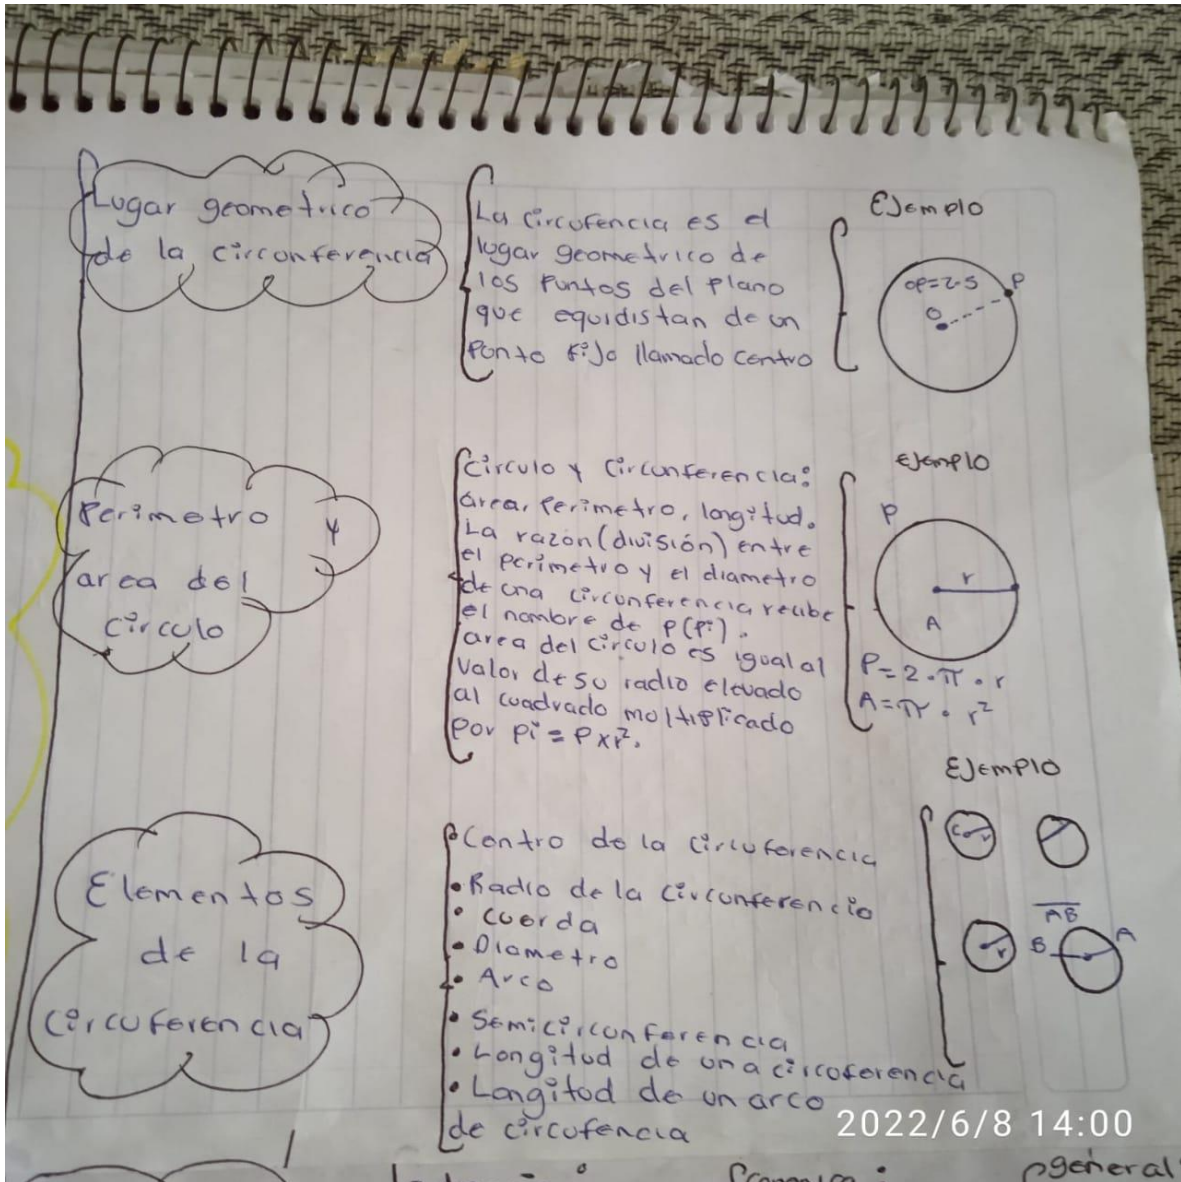 Lugar geometrico
de la circonferencia
La Circufencia es el
lugar geometrico de
los puntos del plano
que equidistan de un
Punto fijo llamado centro
Ejemplo
OP=2.5
P
O
Perimetro y
area del
circulo
Circulo y Circunferencia:
área, Perimetro, longitud.
La razón (división) entre
el perimetro y el diametro
de una circonferencia recibe
el nombre de P(Pi).
area del circulo es igual al
valor de su radio elevado
al cuadrado moltiplicado
por pi = P x r².
Ejemplo
P
r
A
P= 2 · π · r
A= π · r²
Elementos
de la
Circuferencia
• Centro de la Circuferencia
• Radio de la Circunferencia
• Cuerda
• Diametro
• Arco
• Semicircunferencia
• Longitud de una circoferencia
• Longitud de un arco
de circufencia
Ejemplo
C r
r
AB
B A
2022/6/8 14:00
general